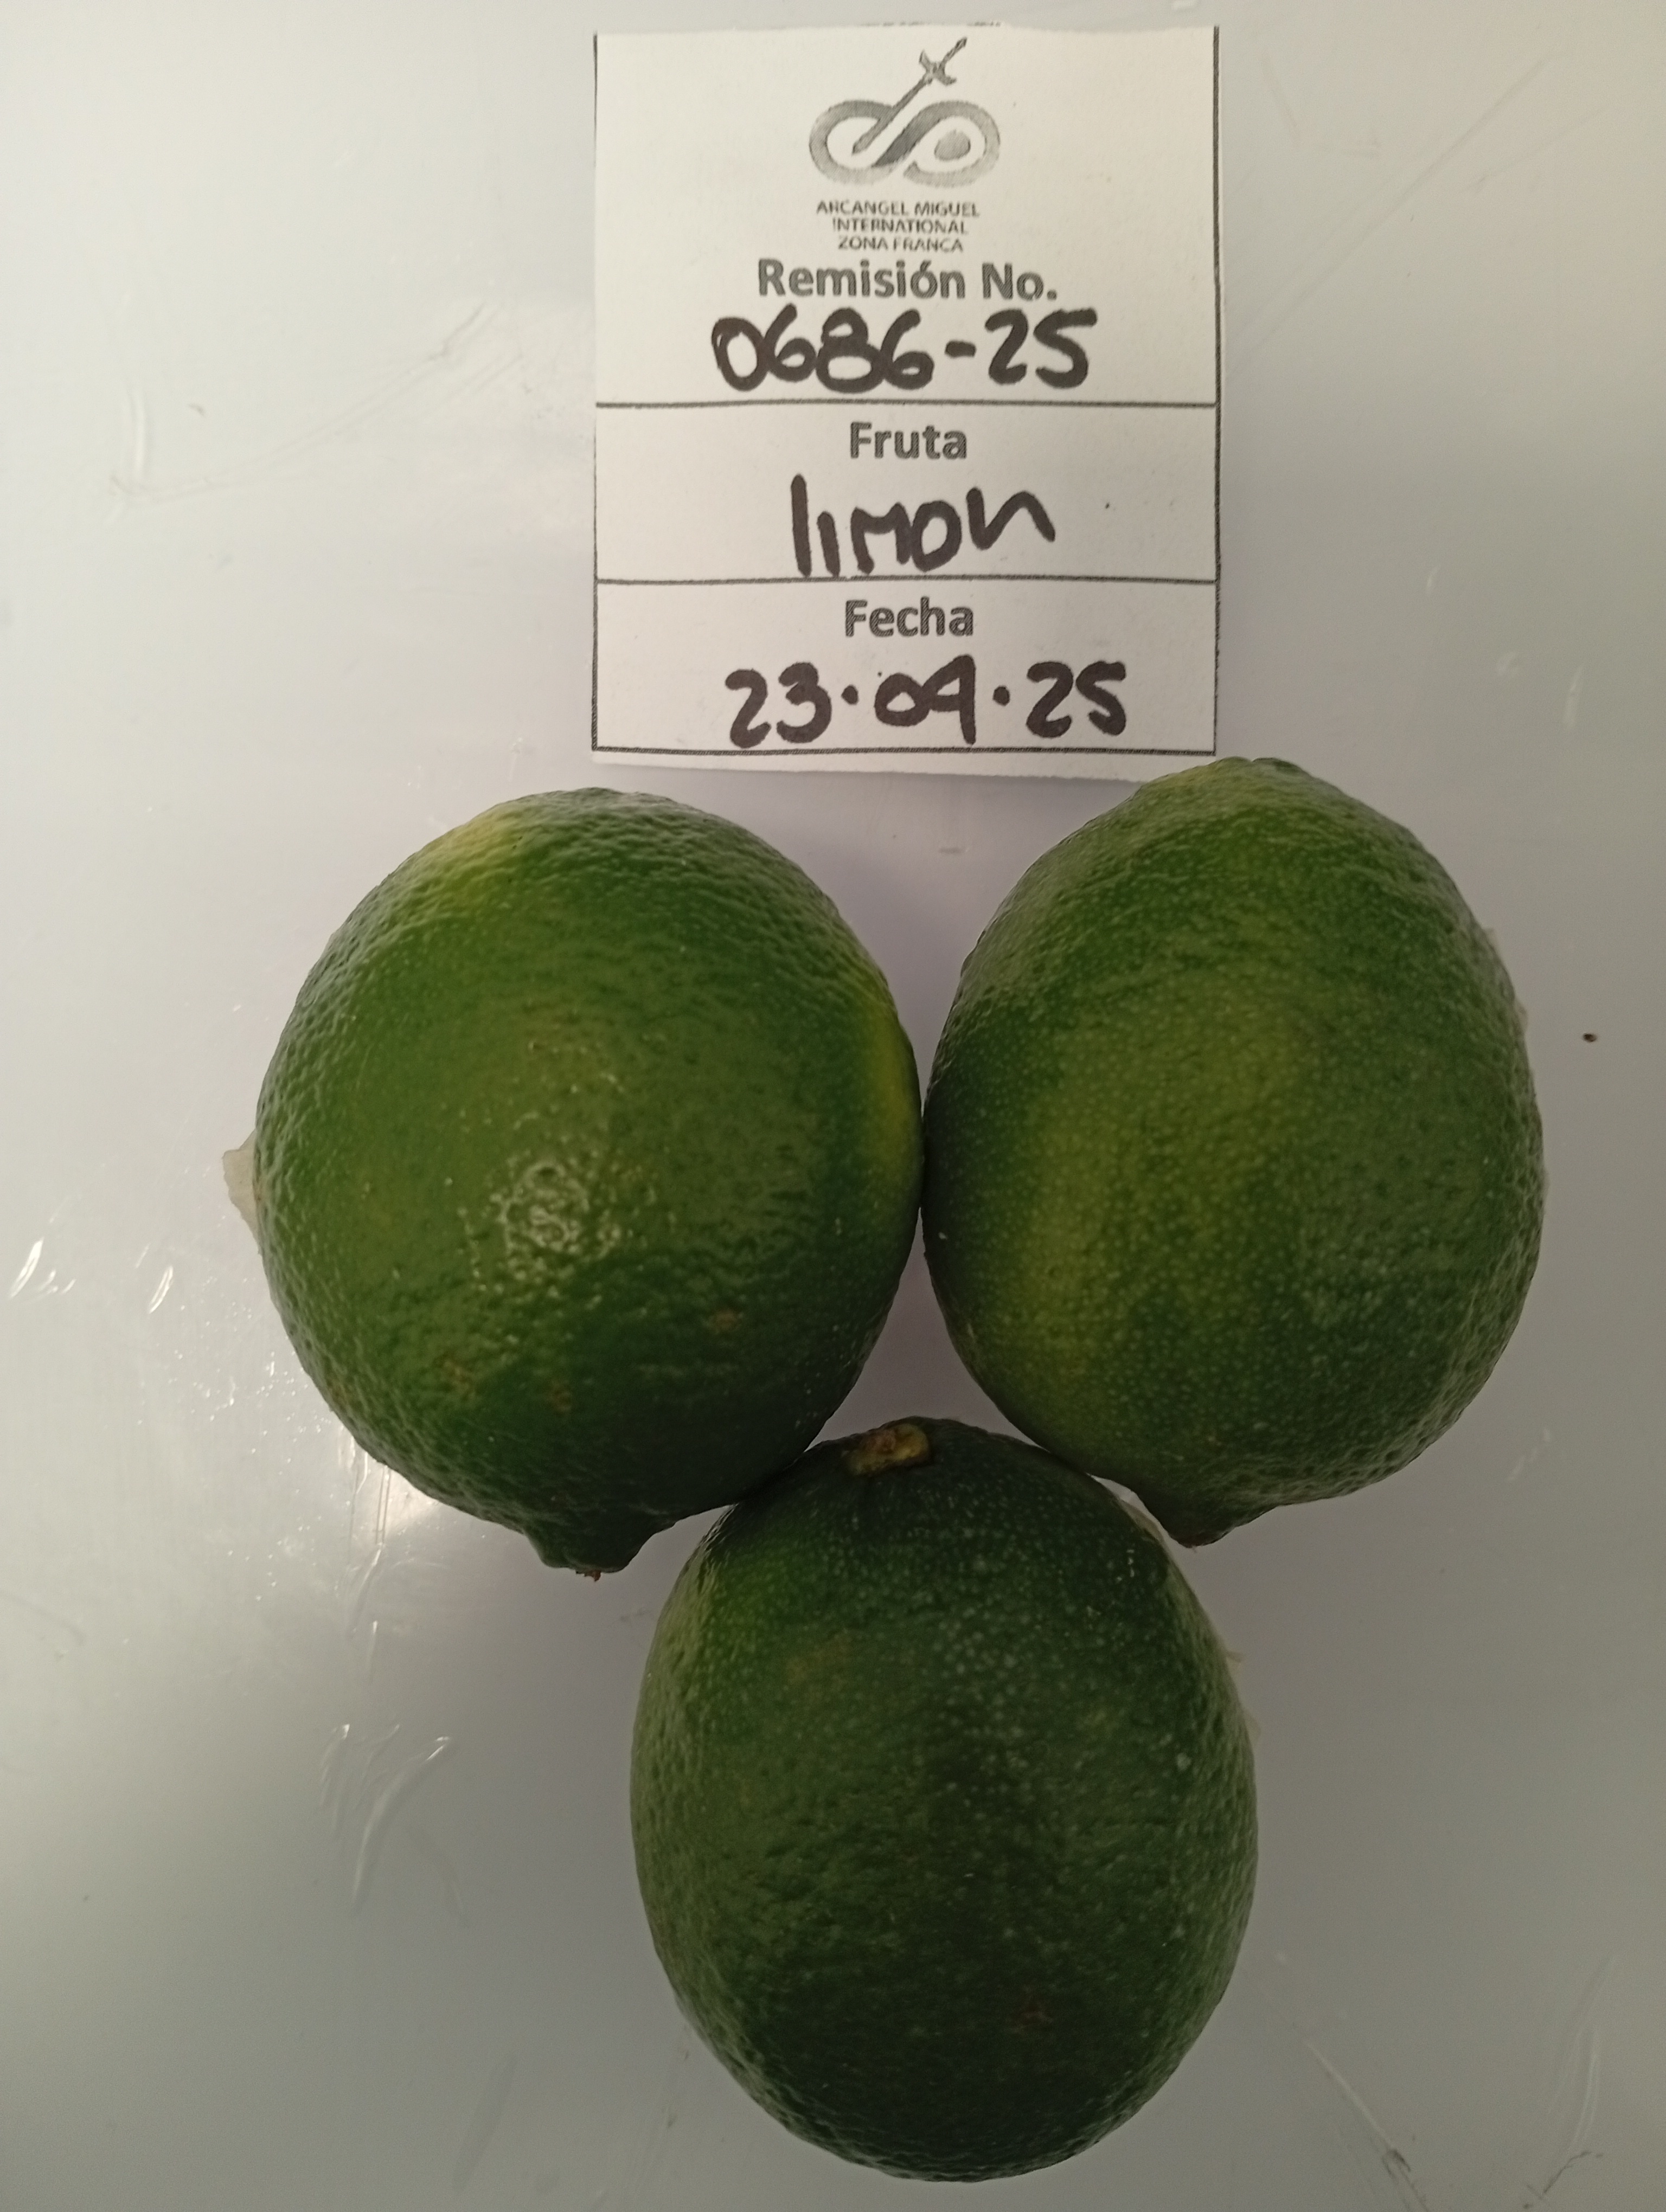 ARCANGEL MIGUEL
INTERNATIONAL
ZONA FRANCA
Remisión No.
0686-25
Fruta
limon
Fecha
23.04.25